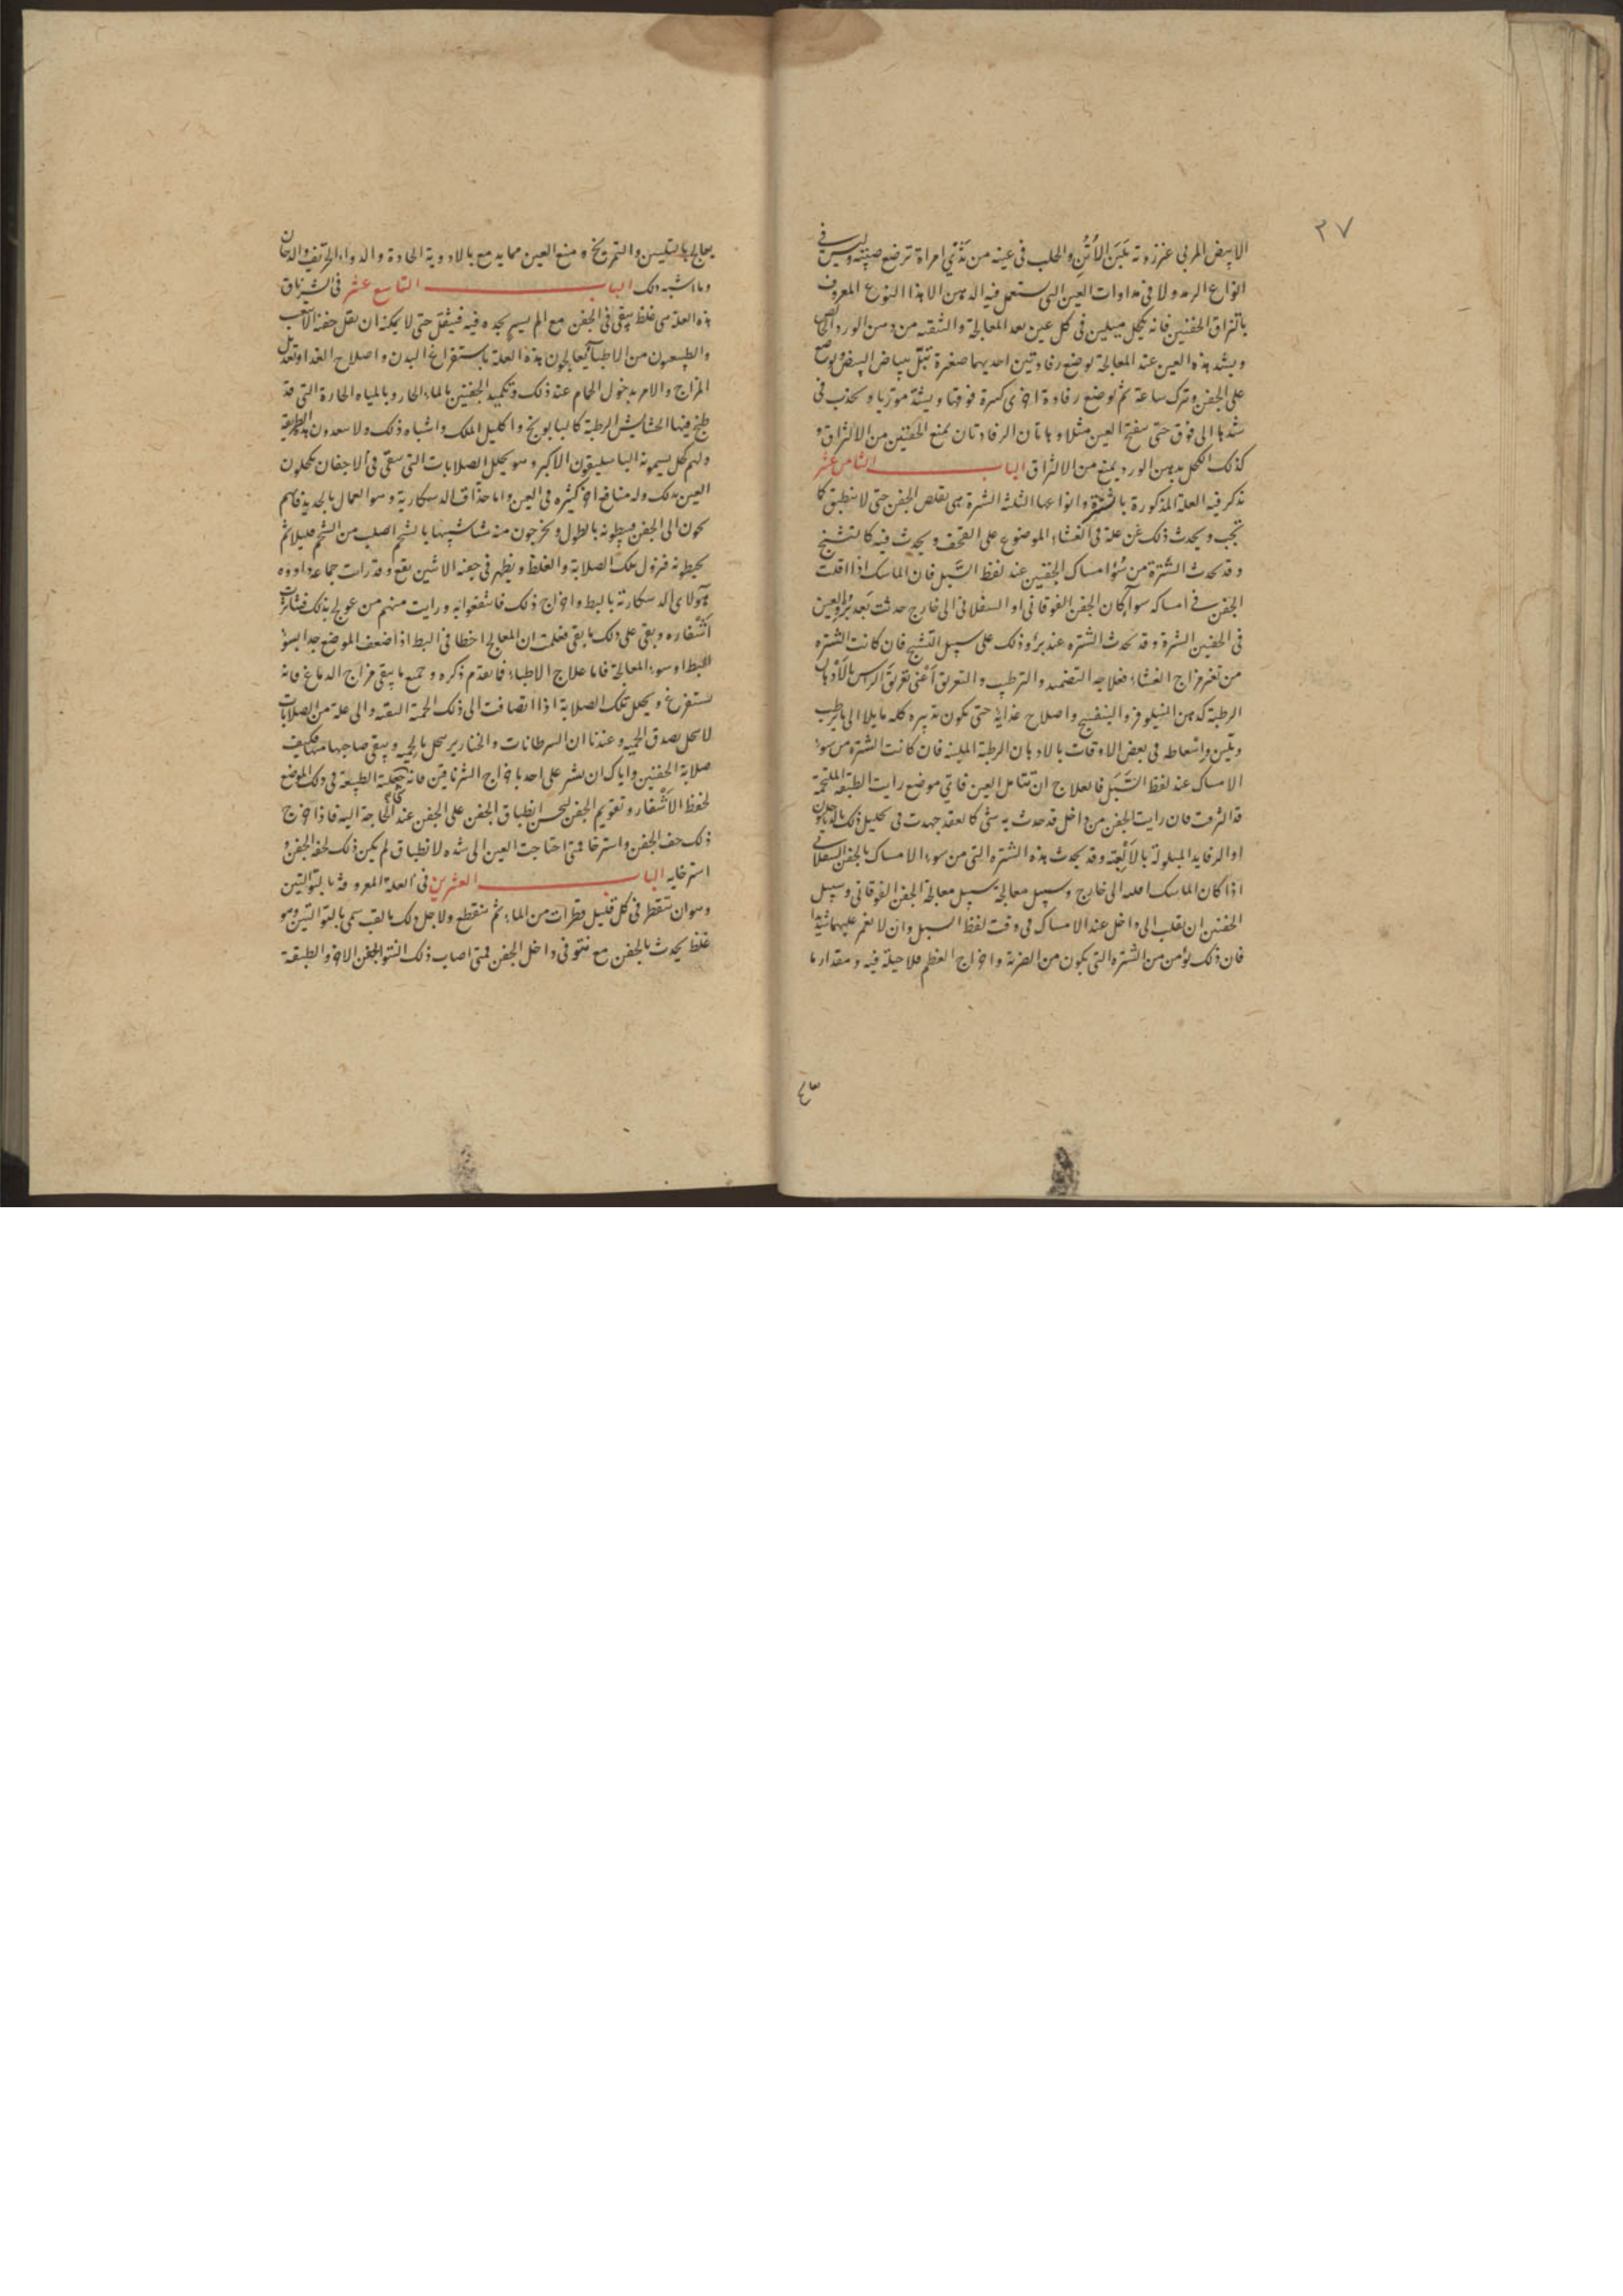 ٣٧
الابيض المربى عززوته بلبن الأتن والحلب فى عينه من ثدي امراة ترضع صبيته وليس فى
انواع الرمد ولا فى مداوات العين التى يستعمل فيه الدهن الا هذا النوع المعروف
بالتزاق الجفنين فانه يكحل ميلين فى كل عين بعد المعالجة والتنقيه من دهن الورد الخالص
ويشد هذه العين عند المعالجة بوضع رفادتين احديهما صغيرة تبتل ببياض البيض ويوضع
على الجفن ويترك ساعة ثم يوضع رفادة اخرى كبيرة فوقها ويشد موربا ويجذب فى
شدها الى فوق حتى ينفتح العين مثلا وهاتان الرفادتان يمنع الجفنين من الالتزاق و
كذلك الكحل بدهن الورد يمنع من الالتزاق الباب الثامن عشر
نذكر فيه العلة المذكورة بالشترة وانواعها الثلثة الشترة هى تقلص الجفن حتى لا ينطبق كما
يجب ويحدث ذلك عن علة فى الغشاء الموضوع على القحف ويحدث فيه كالتشنج
وقد تحدث الشترة من سؤ امساك الجفنين عند لقط السبل فان الماسك اذا اقلت
الجفن فى امساكه سوآ كان الجفن الفوقانى او السفلانى الى خارج حدثت بعد برؤ العين
فى الجفنين الشترة وقد تحدث الشتره عند برؤ وذلك على سبيل التشنج فان كانت الشتره
من تغير مزاج الغشاء فعلاجه التضميد والترطيب والتعريق أعنى تعريق الراس بالادهان
الرطبة كدهن النيلوفر والبنفسج واصلاح غذايه حتى يكون تدبيره كله مايلا الى ما يرطب
ويلين واسعاطه فى بعض الاوقات بالادهان الرطبة الملينه فان كانت الشتره من سوء
الامساك عند لقط السبل فالعلاج ان تتامل العين فاتي موضع رايت الطبقه الملتحمة
قد التزقت فان رايت الجفن من داخل قد حدث به شئ كالعقد جهدت فى تحليل ذلك
او الرفايد المبلولة بالألعبة وقد يحدث هذه الشتره التى من سوء الامساك بالجفن السفلانى
اذا كان الماسك اقلبه الى خارج وسبيل معالجته سبيل معالجة الجفن الفوقانى وسبيل
الجفنين ان يقلب الى داخل عند الامساك فى وقت لقط السبل وان لا يغمر عليهما شديدا
فان ذلك يؤمن من الشتره التى يكون من الضربة واخراج العظم فلا حيلة فيه ومقدار ما
يعالج بالتليين والتمريخ ومنع العين مما يدمع بالادوية الحادة والدواء الحريف والدخان
وما اشبه ذلك الباب التاسع عشر فى الشرناق
هذه العلة هى غلظ يبقى فى الجفن مع الم يسير يجده فيه فيثقل حتى لا يمكنه ان يقل جفنه الا بتعب
والطبيعيون من الاطبآ يعالجون هذه العلة باستفراغ البدن واصلاح الغذا وتعديل
المزاج والامر بدخول الحمام عند ذلك وتكميد الجفنين بالماء الحار وبالمياه الحارة التى قد
طبخ فيها الحشايش الرطبة كالبابونج واكليل الملك واشباه ذلك ولا يتعدون هذه الطريقة
ولهم كحل يسمونه الباسليقون الاكبر وهو يحلل الصلابات التى تبقى فى الاجفان يكحلون
العين بذلك وله منافع اخر كثيره فى العين واما حذاق الدسكارية وهو العمال بالحديد فانهم
يجون الى الجفن فيبطونه بالطول ويخرجون منه شيا شبيها بالشحم اصلب من الشحم قليلا ثم
يخيطونه فيزول تلك الصلابة والغلظ ويظهر فى جفنه الاشين يقع وقد رات جماعة داووه
هولاى الدسكارية بالبط واخراج ذلك فاستنفعوا به ورايت منهم من عولج بذلك فتناثرت
أشفاره وبقى على ذلك ما بقى فعلمت ان المعالج اخطا فى البط اذ اضعف الموضع جدا بسوء
البط او سوء المعالجة فاما علاج الاطباء فما تقدم ذكره وجميع ما ينقى مزاج الدماغ فانه
يستفرغ ويحلل تلك الصلابة اذا انضافت الى ذلك الحمية البقيه والى علة من الصلابات
لا تنحل بصدق الحميه وعندنا ان السرطانات والخنازير تنحل بالحميه ويبقى صاحبها منها فكيف
صلابة الجفنين واياك ان تشر على احد باخراج الشرناقين فانه جبلته الطبيعة فى ذلك الموضع
لحفظ الأشفار وتقويم الجفن ليحسن انطباق الجفن على الجفن عند الحاجة اليه فاذا اخرج
ذلك جف الجفن واسترخا فمتى احتاجت العين الى شده لانطباق لم يكن ذلك لخفة الجفن و
استرخايه الباب العشرين فى العلة المعروفة بالتوالتين
وهو ان تتقطر فى كل قليل قطرات من الماء ثم تنقطع ولاجل ذلك بالقب سمى بالتوالتين وهو
غلظ يحدث بالجفن مع نتو فى داخل الجفن فمتى اصاب ذلك النتو الجفن الاخر والطبقة